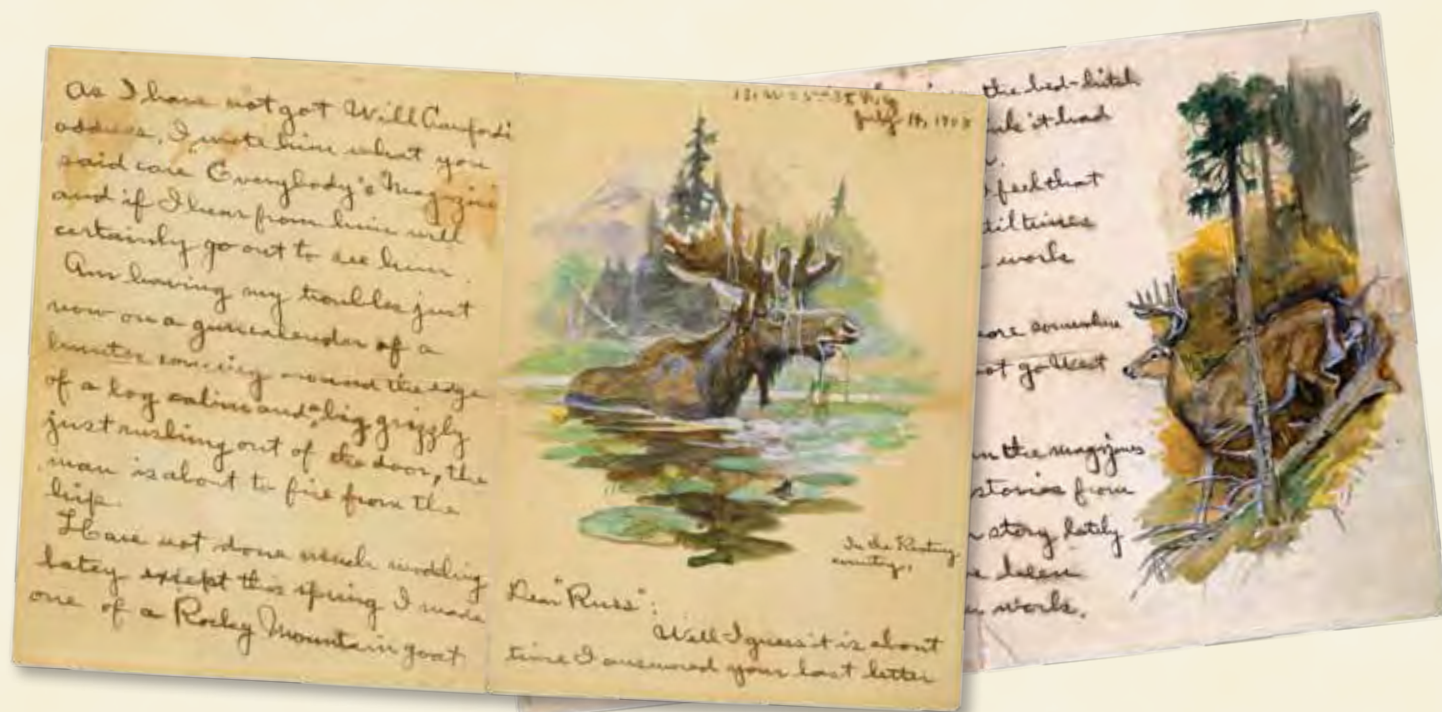 As I have not got Will Craufords
address, I wrote him what you
said care Everybody's Magazine
and if I hear from him will
certainly go out to see him.
Am having my troubles just
now on a gun calender of a
hunter coming around the edge
of a log cabin and a big grizzly
just rushing out of the door, the
man is about to fire from the
hip.
Have not done much modeling
latey except this spring I made
one of a Rocky Mountain goat
July 14, 1908
In the Rooting
country.
Dear "Russ":
Well I guess it is about
time I answered your last letter
the bed-hitch
it had
feel that
til times
work
somewhere
not gotten
in the magazines
stories from
story lately
been
work.